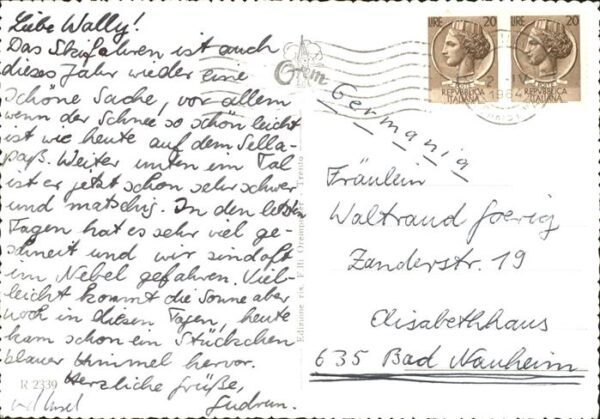 Liebe Wally!
Das Skifahren ist auch
dieses Jahr wieder eine
schöne Sache, vor allem
wenn der Schnee so schön leicht
ist wie heute auf dem Sella-
paß. Weiter unten im Tal
ist er jetzt schon sehr schwer
und matschig. In den letzten
Tagen hat es sehr viel ge-
schneit und wir sind oft
im Nebel gefahren. Viel-
leicht kommt die Sonne aber
noch in diesen Tagen, heute
kam schon ein Stückchen
blauer Himmel hervor.
Herzliche Grüße,
Gudrun.
R 2339
Edizione ris. F.lli - Trento
LIRE 20
REPVBBLICA
ITALIANA
LIRE 20
REPVBBLICA
ITALIANA
1964
Germania
Fräulein
Waltraud Goerig
Zanderstr. 19
Elisabethhaus
635 Bad Nauheim